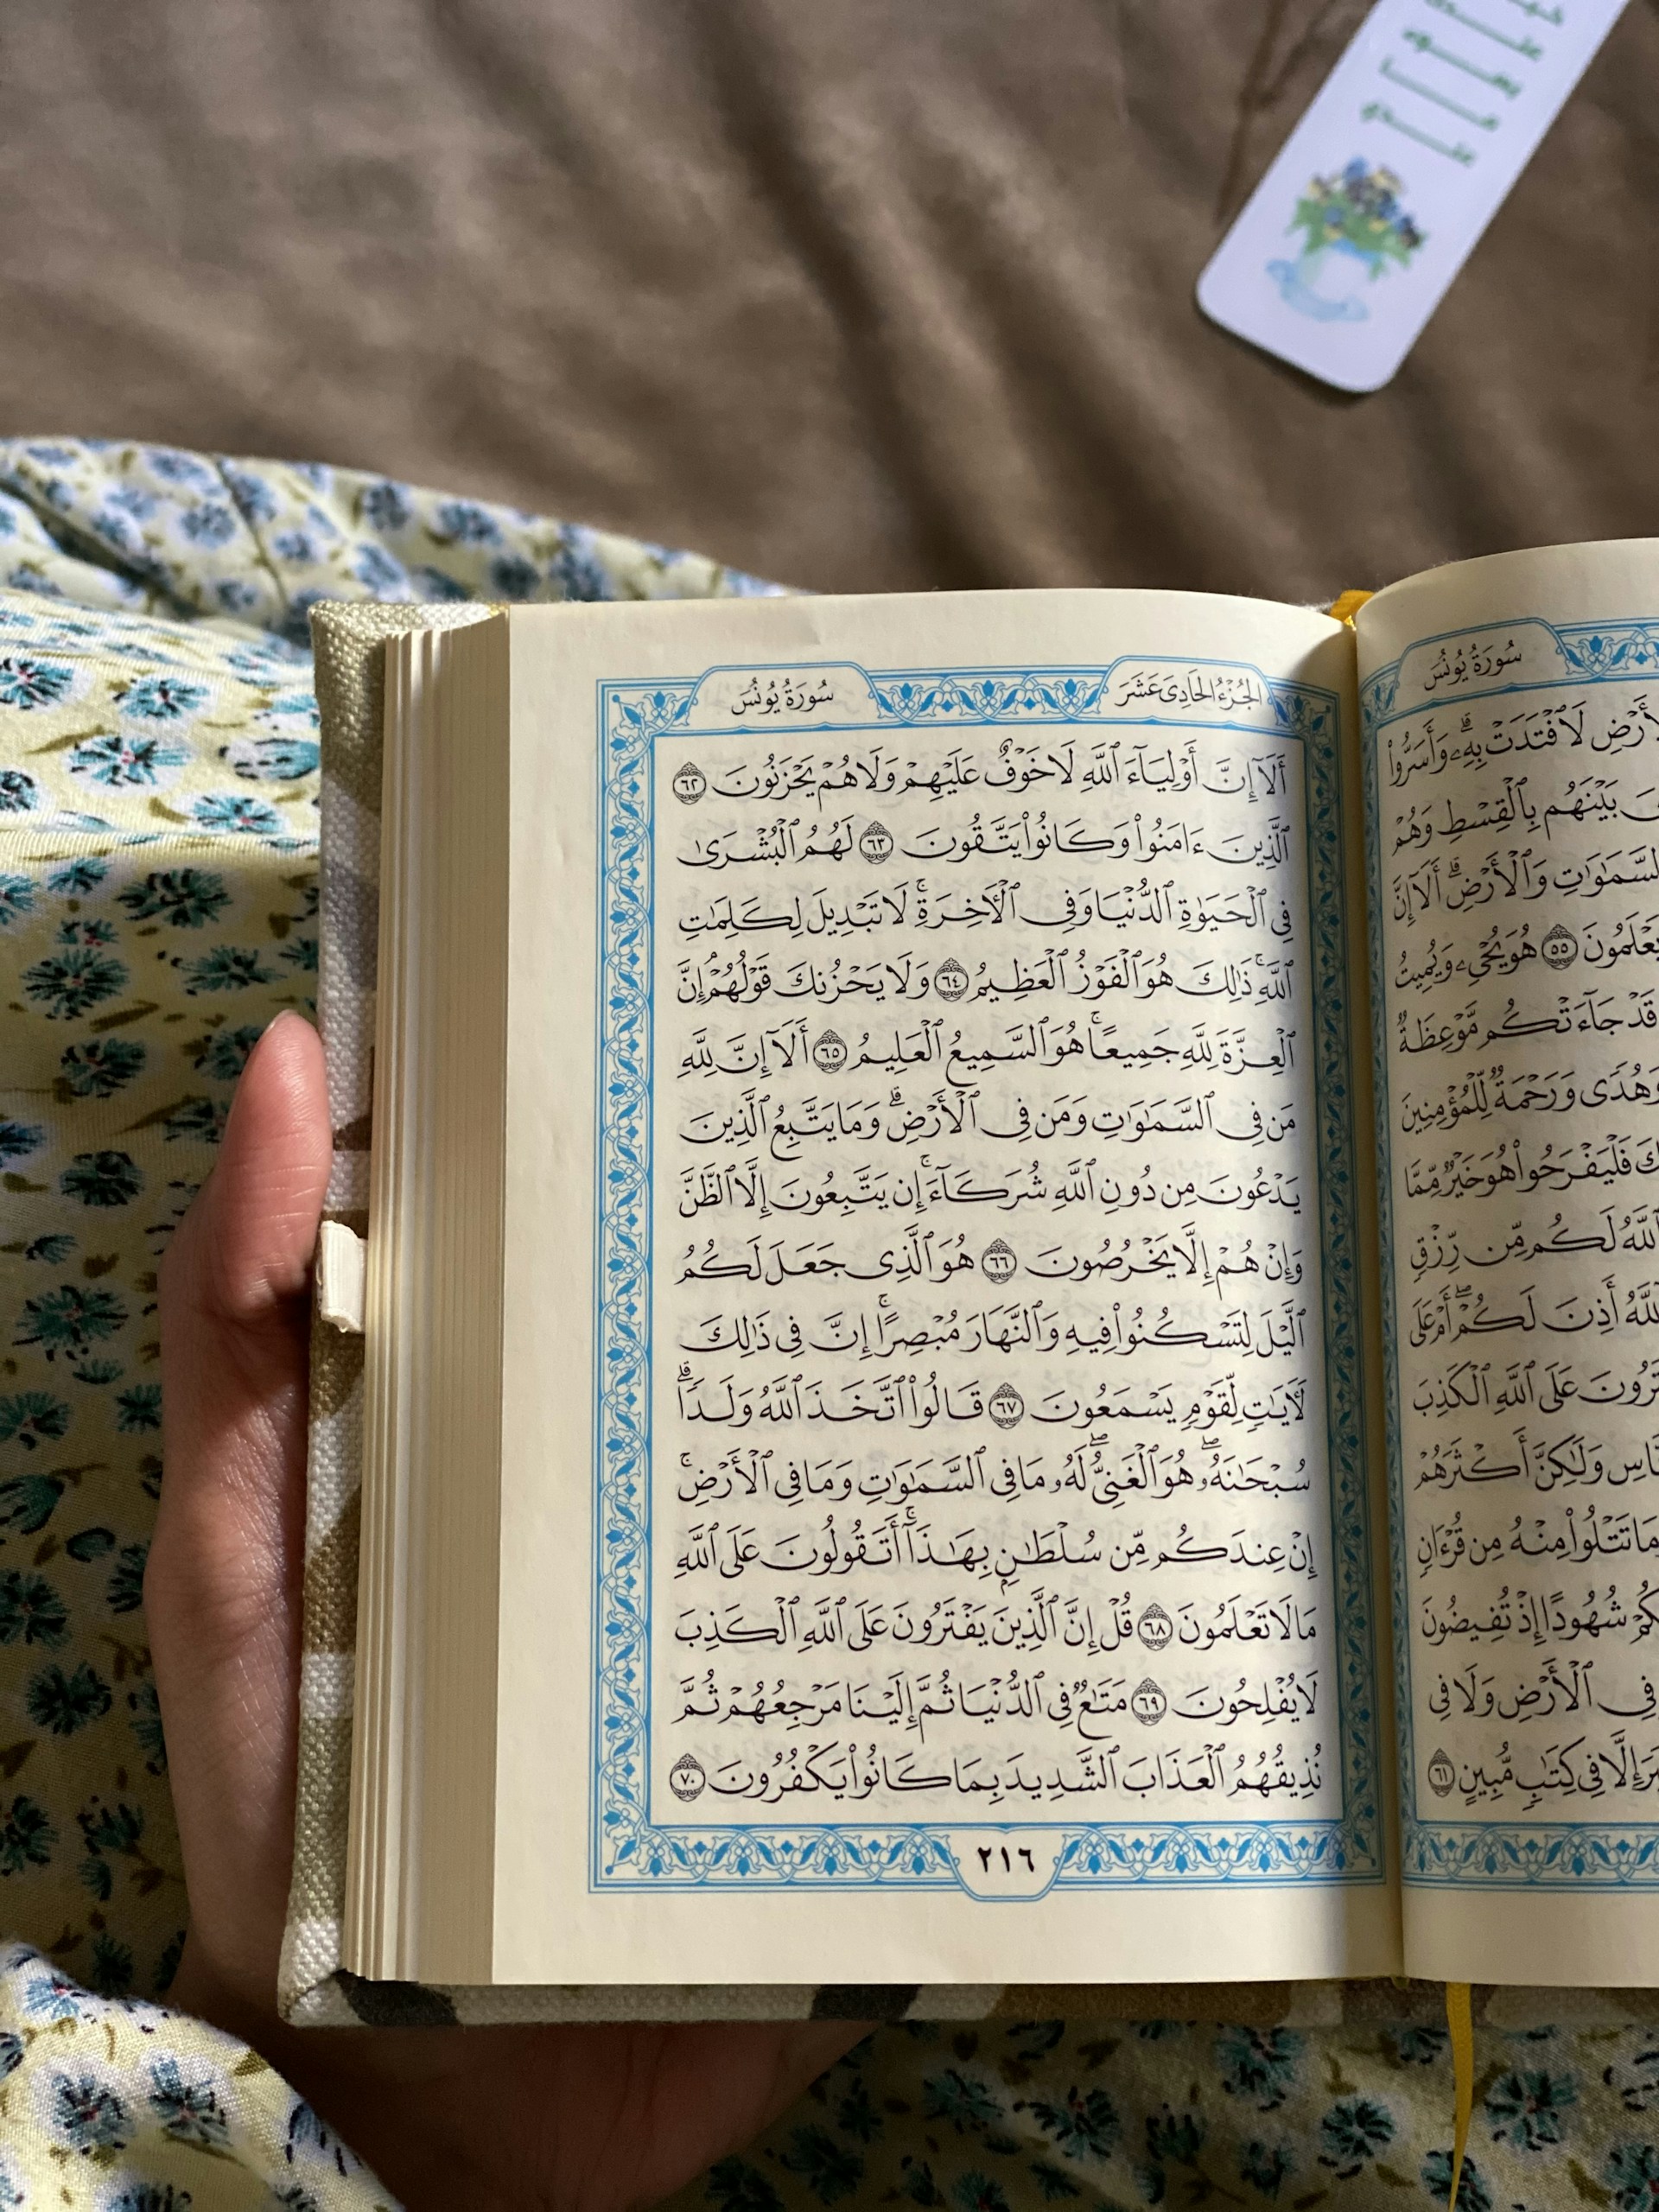 سُورَةُ يُونُسَ
لَافْتَدَتْ بِهِۦ ۗ وَأَسَرُّوا۟
بَيْنَهُم بِٱلْقِسْطِ وَهُمْ
ٱلسَّمَـٰوَٰتِ وَٱلْأَرْضِ ۗ أَلَآ إِنَّ
هُوَ يُحْىِۦ وَيُمِيتُ ٥٥
قَدْ جَآءَتْكُم مَّوْعِظَةٌ
وَهُدًى وَرَحْمَةٌ لِّلْمُؤْمِنِينَ
فَلْيَفْرَحُوا۟ هُوَ خَيْرٌ مِّمَّا
ٱللَّهُ لَكُم مِّن رِّزْقٍ
أَذِنَ لَكُمْ ۖ أَمْ عَلَى
عَلَى ٱللَّهِ ٱلْكَذِبَ
وَلَـٰكِنَّ أَكْثَرَهُمْ
وَمَا تَتْلُوا۟ مِنْهُ مِن قُرْءَانٍ
شُهُودًا إِذْ تُفِيضُونَ
فِى ٱلْأَرْضِ وَلَا فِى
إِلَّا فِى كِتَـٰبٍ مُّبِينٍ ٦١
الجُزْءُ الحَادِىَ عَشَرَ
سُورَةُ يُونُسَ
أَلَآ إِنَّ أَوْلِيَآءَ ٱللَّهِ لَا خَوْفٌ عَلَيْهِمْ وَلَا هُمْ يَحْزَنُونَ ٦٢
ٱلَّذِينَ ءَامَنُوا۟ وَكَانُوا۟ يَتَّقُونَ ٦٣ لَهُمُ ٱلْبُشْرَىٰ
فِى ٱلْحَيَوٰةِ ٱلدُّنْيَا وَفِى ٱلْـَٔاخِرَةِ ۚ لَا تَبْدِيلَ لِكَلِمَـٰتِ
ٱللَّهِ ۚ ذَٰلِكَ هُوَ ٱلْفَوْزُ ٱلْعَظِيمُ ٦٤ وَلَا يَحْزُنكَ قَوْلُهُمْ ۘ إِنَّ
ٱلْعِزَّةَ لِلَّهِ جَمِيعًا ۚ هُوَ ٱلسَّمِيعُ ٱلْعَلِيمُ ٦٥ أَلَآ إِنَّ لِلَّهِ
مَن فِى ٱلسَّمَـٰوَٰتِ وَمَن فِى ٱلْأَرْضِ ۗ وَمَا يَتَّبِعُ ٱلَّذِينَ
يَدْعُونَ مِن دُونِ ٱللَّهِ شُرَكَآءَ ۚ إِن يَتَّبِعُونَ إِلَّا ٱلظَّنَّ
وَإِنْ هُمْ إِلَّا يَخْرُصُونَ ٦٦ هُوَ ٱلَّذِى جَعَلَ لَكُمُ
ٱلَّيْلَ لِتَسْكُنُوا۟ فِيهِ وَٱلنَّهَارَ مُبْصِرًا ۚ إِنَّ فِى ذَٰلِكَ
لَـَٔايَـٰتٍ لِّقَوْمٍ يَسْمَعُونَ ٦٧ قَالُوا۟ ٱتَّخَذَ ٱللَّهُ وَلَدًا ۗ
سُبْحَـٰنَهُۥ ۖ هُوَ ٱلْغَنِىُّ ۖ لَهُۥ مَا فِى ٱلسَّمَـٰوَٰتِ وَمَا فِى ٱلْأَرْضِ ۚ
إِنْ عِندَكُم مِّن سُلْطَـٰنٍۭ بِهَـٰذَآ ۚ أَتَقُولُونَ عَلَى ٱللَّهِ
مَا لَا تَعْلَمُونَ ٦٨ قُلْ إِنَّ ٱلَّذِينَ يَفْتَرُونَ عَلَى ٱللَّهِ ٱلْكَذِبَ
لَا يُفْلِحُونَ ٦٩ مَتَـٰعٌ فِى ٱلدُّنْيَا ثُمَّ إِلَيْنَا مَرْجِعُهُمْ ثُمَّ
نُذِيقُهُمُ ٱلْعَذَابَ ٱلشَّدِيدَ بِمَا كَانُوا۟ يَكْفُرُونَ ٧٠
٢١٦